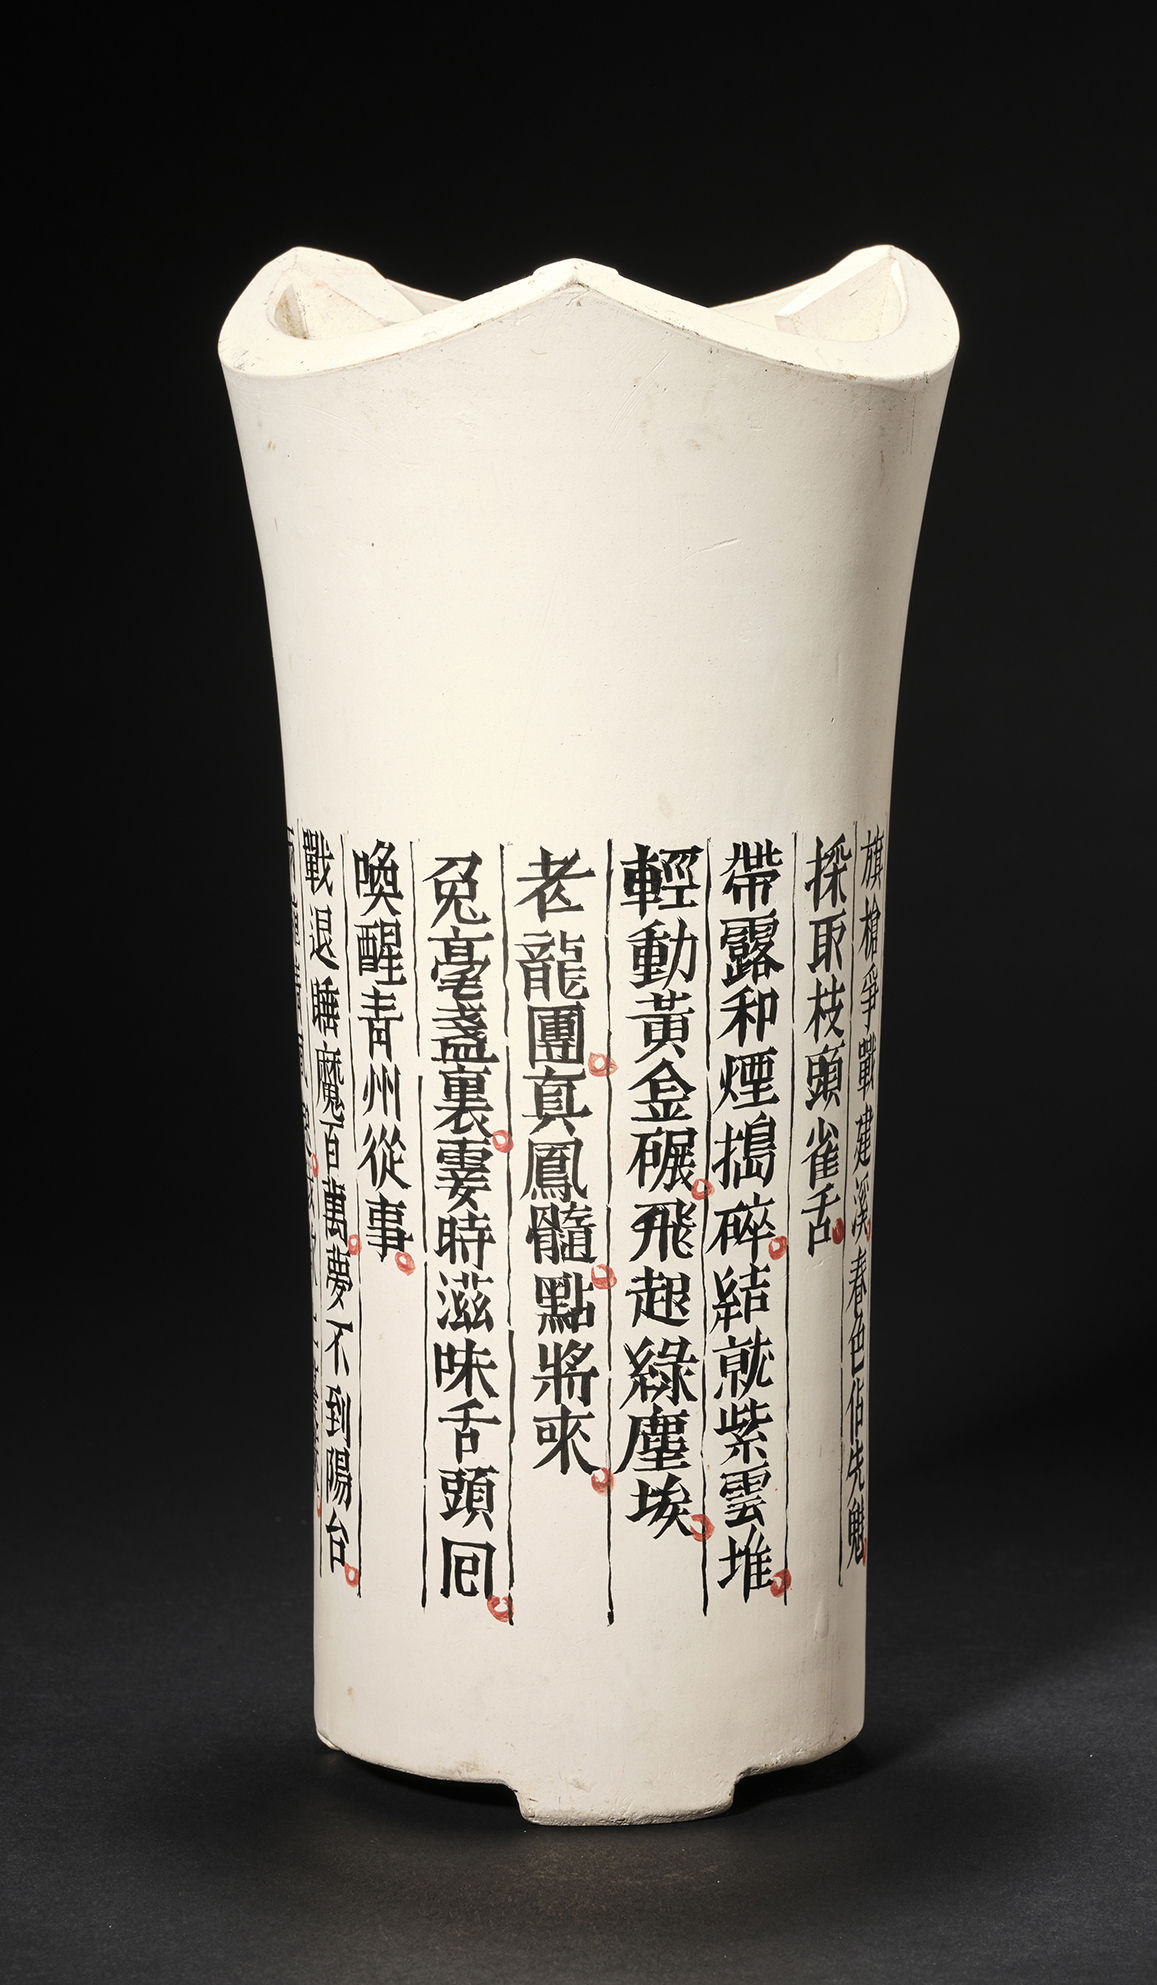 旗槍爭戰建溪春色佔先魁
採取枝頭雀舌
帶露和煙搗碎結就紫雲堆
輕動黃金碾飛起綠塵埃
老龍團真鳳髓點將來
兔毫盞裏霎時滋味舌頭回
喚醒青州從事
戰退睡魔百萬夢不到陽台